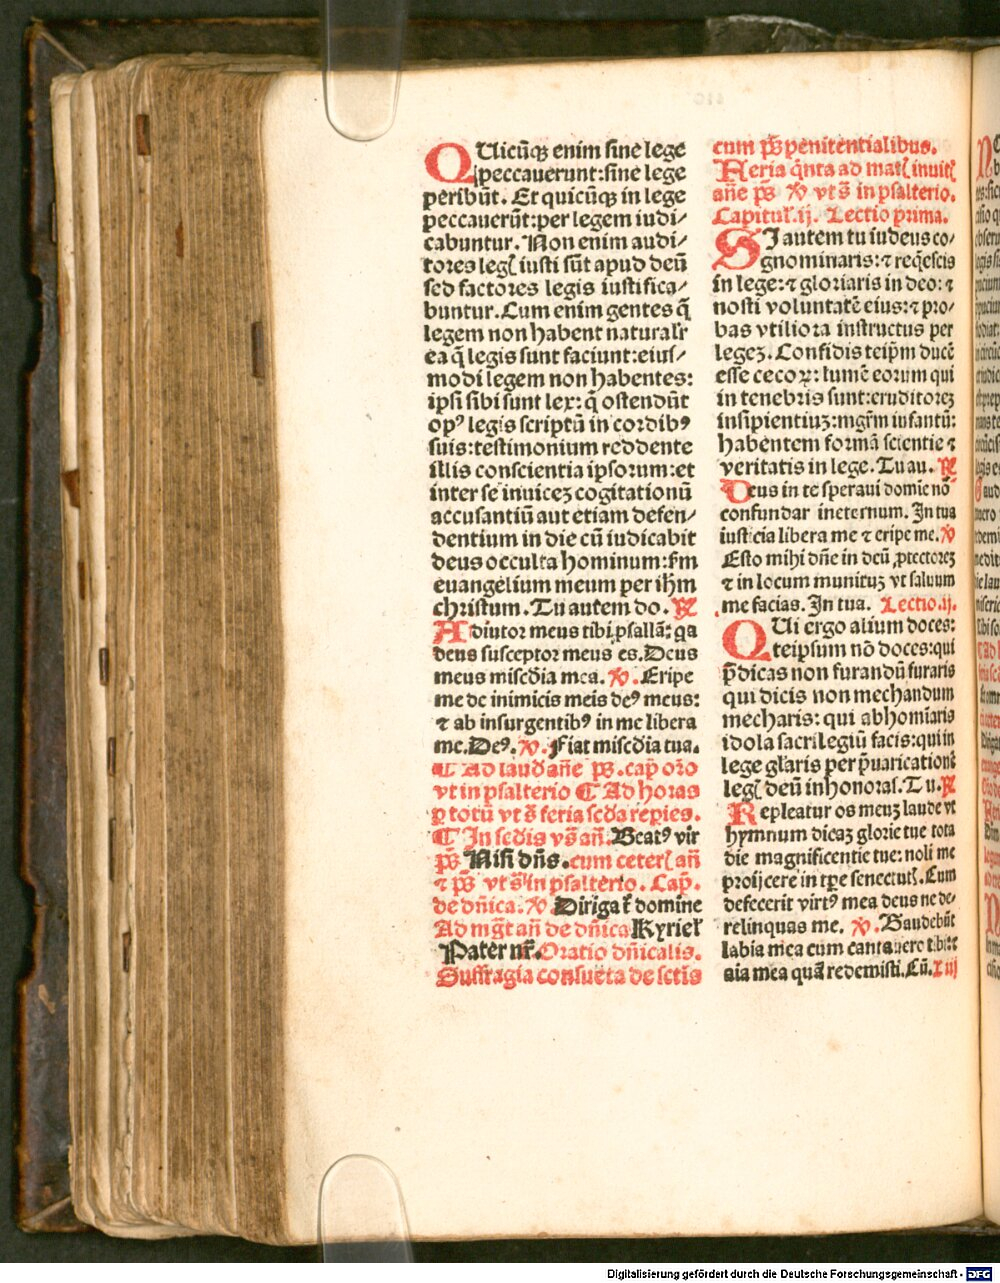 QUicūqꝫ enim sine lege
peccauerunt:sine lege
peribūt. Et quicūqꝫ in lege
peccauerūt:per legem iudi⸗
cabuntur. Non enim audi⸗
tores legꝭ iusti sūt apud deū
sed factores legis iustifica⸗
buntur. Cum enim gentes q̄
legem non habent naturalr̄
ea q̄ legis sunt faciunt:eius⸗
modi legem non habentes:
ipsi sibi sunt lex: q̄ ostendūt
opꝰ legis scriptū in cordibꝰ
suis:testimonium reddente
illis conscientia ipsorum:et
inter se inuiceꝫ cogitationū
accusantiū aut etiam defen⸗
dentium in die cū iudicabit
deus occulta hominum:ẜm
euangelium meum per ihm̄
christum. Tu autem do. ℟
Adiutor meus tibi psallā: qa
deus susceptor meus es. Deus
meus misc̄dia mea. ℣. Eripe
me de inimicis meis deꝰ meus:
⁊ ab insurgentibꝰ in me libera
me. Deꝰ. ℣. Fiat misc̄dia tua.
¶ Ad laud añe p̄s. cap̄ oro
vt in psalterio ¶ Ad horas
ꝑ totū vt s̄ feria sc̄da repies.
¶ In sc̄dis vs̄ añ. Beatꝰ vir
p̄s Nisi dn̄s. cum ceterꝭ añ
⁊ p̄s vt s̄ in psalterio. Cap̄.
de dn̄ica. ℣ Dirigat̄ domine
Ad mḡt añ de dn̄ica Kyriel̄
Pater nr̄. Oratio dn̄icalis.
Suffragia consueta de sctis
cum p̄s penitentialibus.
Feria q̄nta ad matꝭ inuitꝭ
añe p̄s ℣ vt s̄ in psalterio.
Capitul̄. ij. Lectio prima.
SI autem tu iudeus co⸗
gnominaris: ⁊ req̄escis
in lege: ⁊ gloriaris in deo: ⁊
nosti voluntatē eius: ⁊ pro⸗
bas vtiliora instructus per
legeꝫ. Confidis teip̄m ducē
esse cecoꝝ: lumē eorum qui
in tenebris sunt: eruditoreꝫ
insipientiuꝫ: mgr̄m infantū:
habentem formā scientie ⁊
veritatis in lege. Tu au. ℟
Deus in te speraui domie nō
confundar in eternum. In tua
iusticia libera me ⁊ eripe me. ℣
Esto mihi dn̄e in deū ꝓtectoreꝫ
⁊ in locum munituꝫ vt saluum
me facias. In tua. Lectio. ij.
QUi ergo alium doces:
teipsum nō doces: qui
p̄dicas non furandū furaris
qui dicis non mechandum
mecharis: qui abhomiaris
idola sacrilegiū facis: qui in
lege gl̄aris per p̄uaricationē
legꝭ deū inhonoras. Tu. ℟
Repleatur os meuꝫ laude vt
hymnum dicaꝫ glorie tue tota
die magnificentie tue: noli me
proijcere in tꝑe senectutꝭ. Cum
defecerit virtꝰ mea deus ne de⸗
relinquas me. ℣. Gaudebūt
labia mea cum cantauero tibi: et
aia mea quā redemisti. Cū. L iij
Digitalisierung gefördert durch die Deutsche Forschungsgemeinschaft - DFG